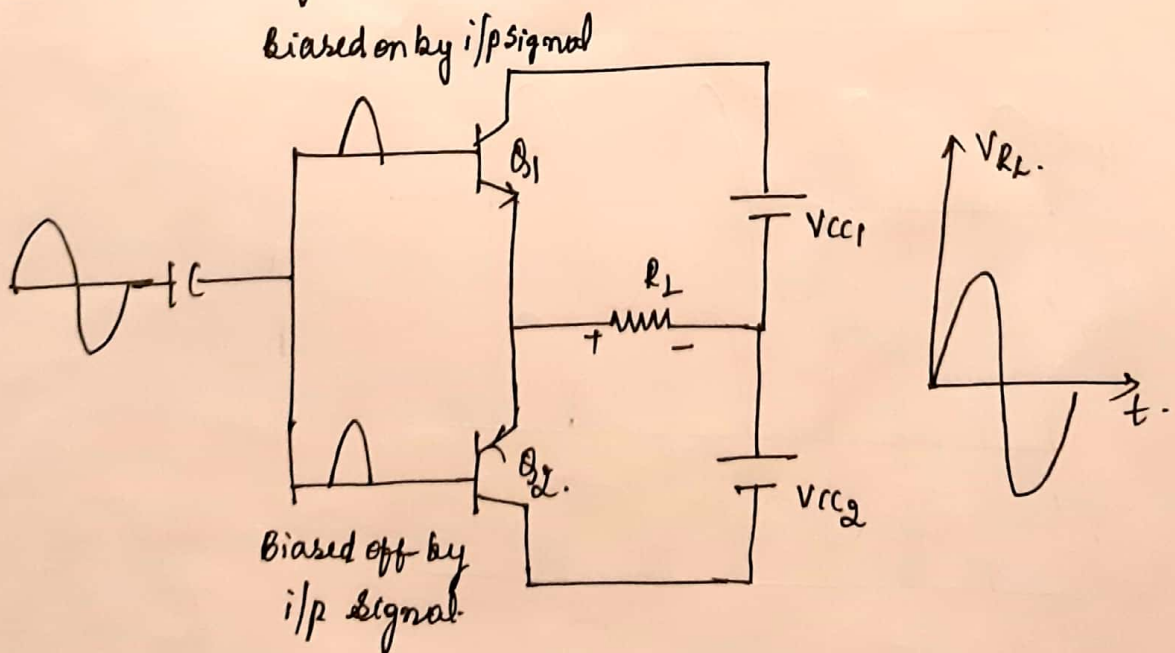 Biased on by i/p signal
Q1
VCC1
VRL.
RL
+
-
t.
Q2.
VCC2
Biased off by
i/p signal.